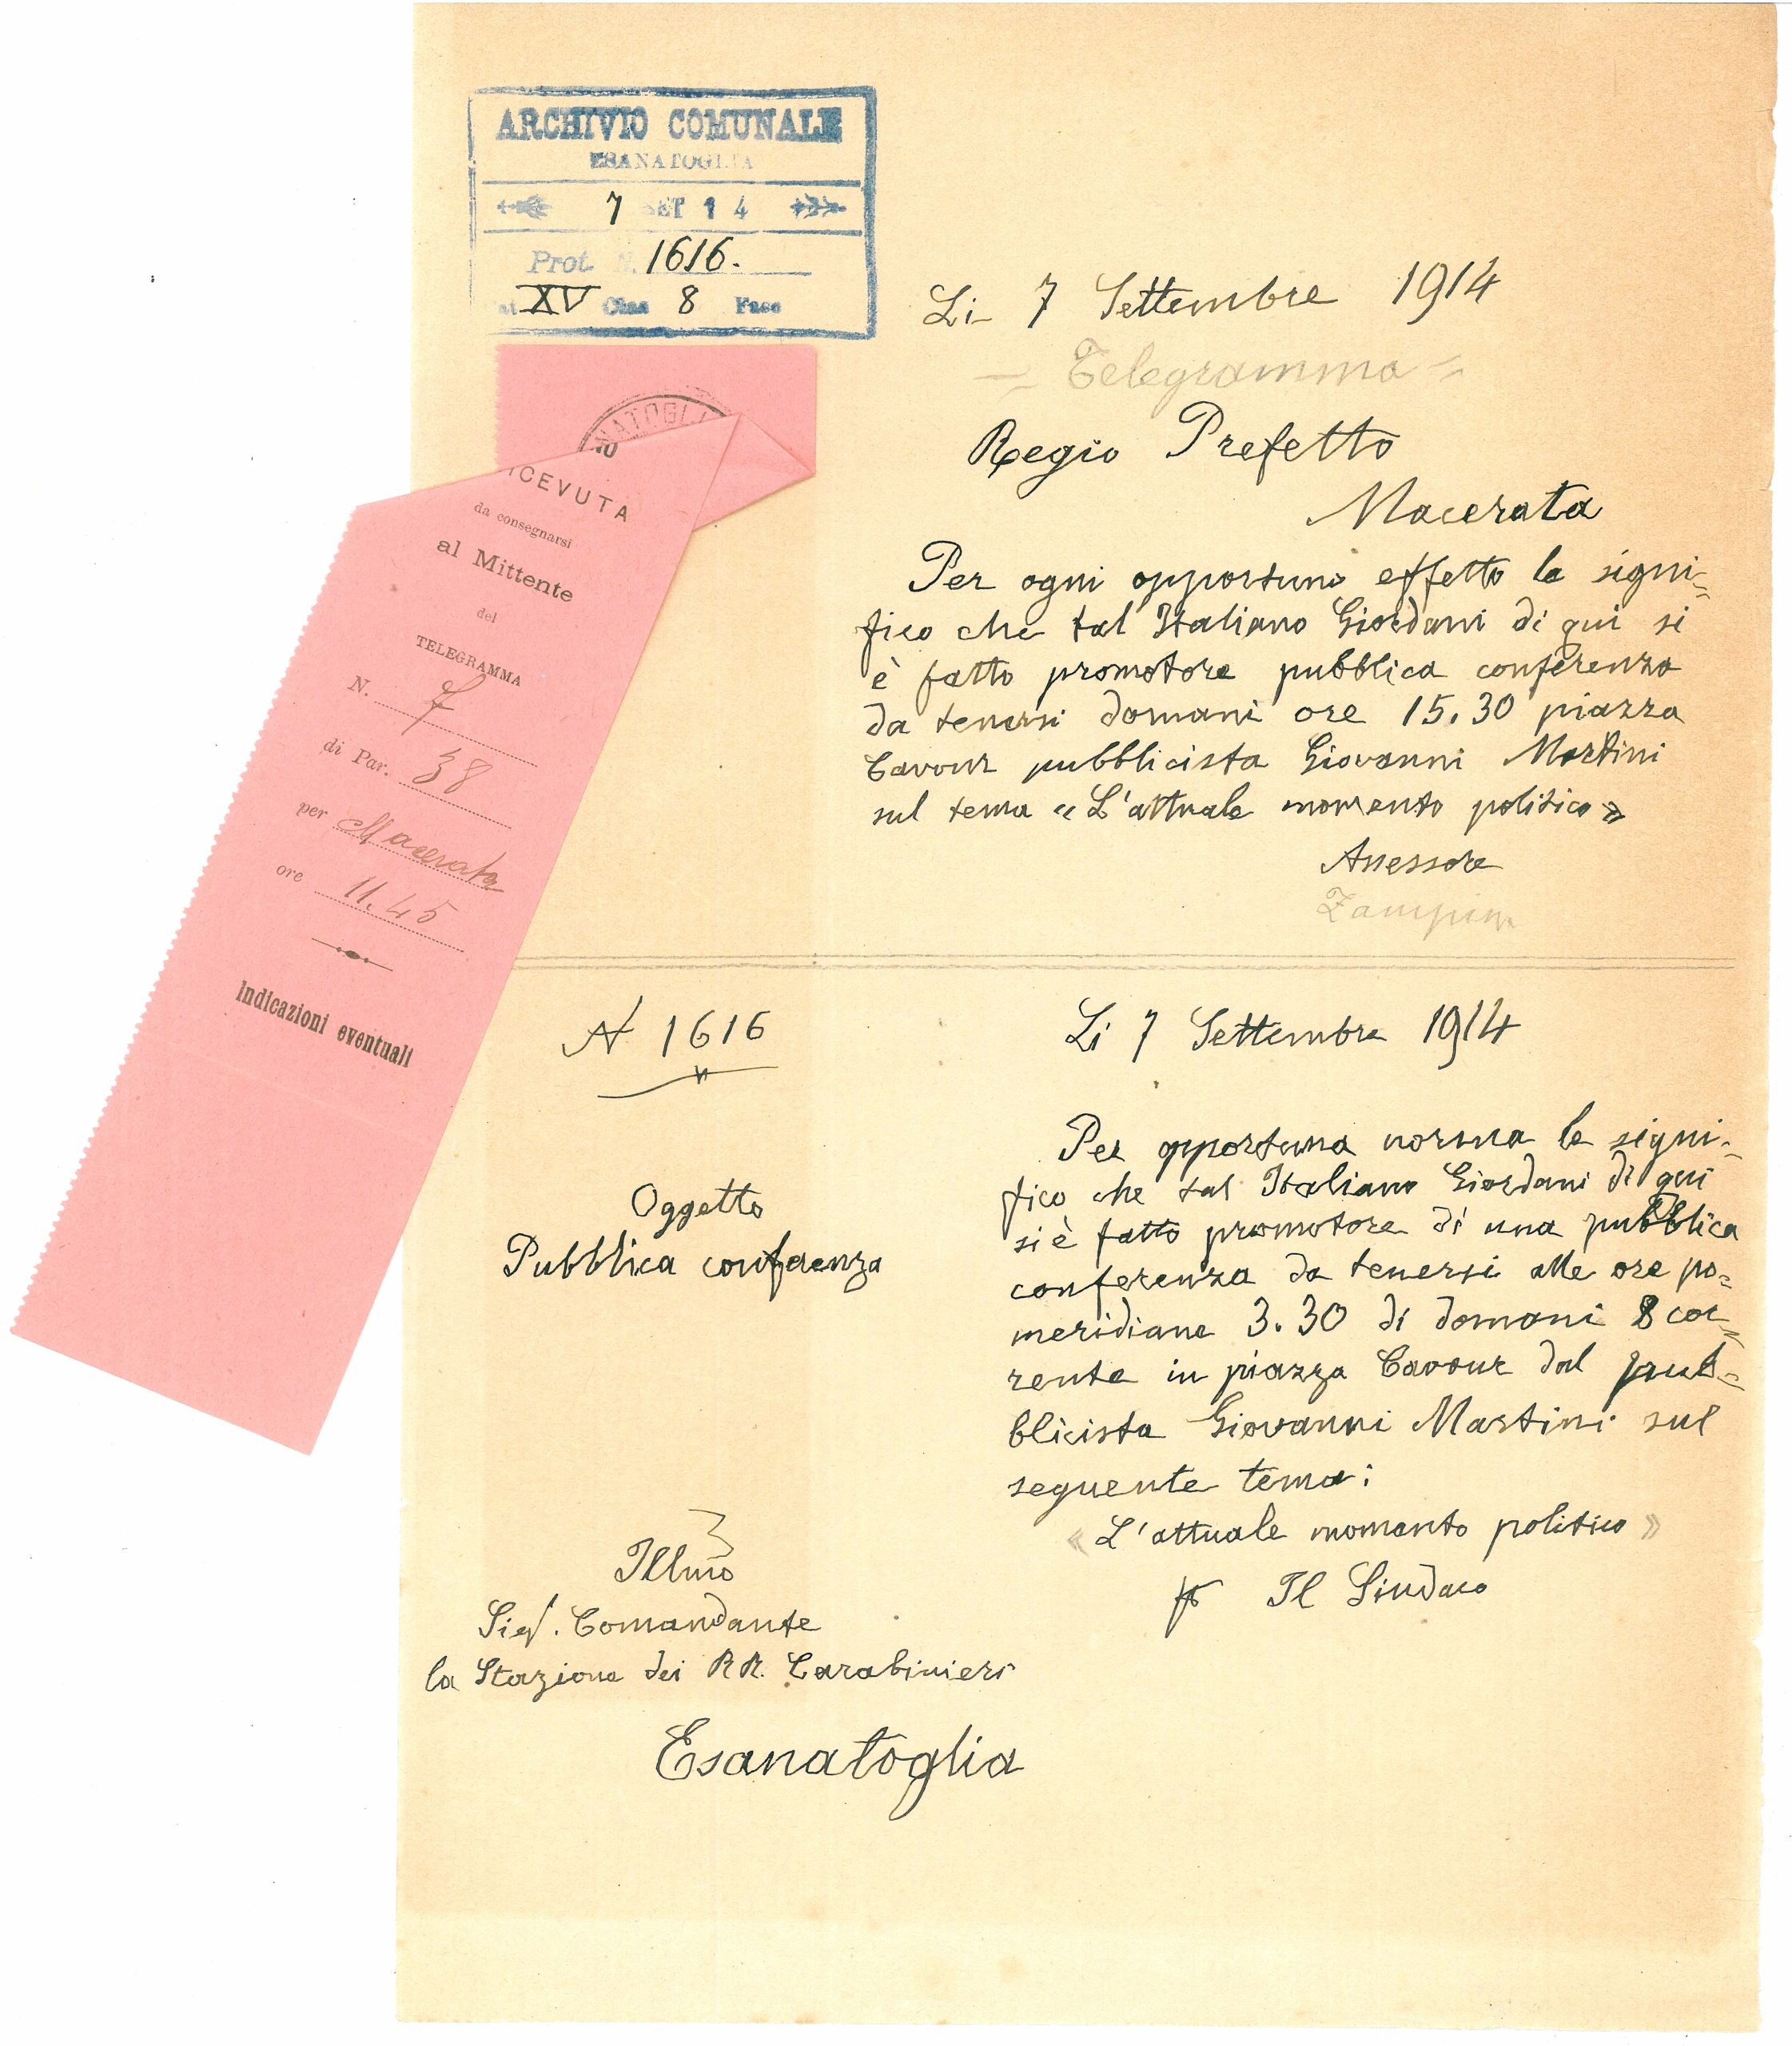 ARCHIVIO COMUNALE
ESANATOGLIA
7 SET 14
Prot. N. 1616.
XV Clas 8 Fasc
Li 7 Settembre 1914
= Telegramma =
Regio Prefetto
Macerata
Per ogni opportuno effetto le signi=
fico che tal Italiano Giordani di qui si
è fatto promotore pubblica conferenza
da tenersi domani ore 15.30 piazza
Cavour pubblicista Giovanni Martini
sul tema « L'attuale momento politico »
Assessore
NATOGLI
10
ICEVUTA
da consegnarsi
al Mittente
del
TELEGRAMMA
N. 7
di Par. 38
per Macerata
ore 11.45
Indicazioni eventuali
N 1616
Li 7 Settembre 1914
Oggetto
Pubblica conferenza
Per opportuna norma le signi=
fico che tal Italiano Giordani di qui
si è fatto promotore di una pubblica
conferenza da tenersi alle ore po=
meridiane 3.30 di domani 8 cor=
rente in piazza Cavour dal pub=
blicista Giovanni Martini sul
seguente tema:
« L'attuale momento politico »
Il Sindaco
Illmo
Sig. Comandante
la Stazione dei RR. Carabinieri
Esanatoglia